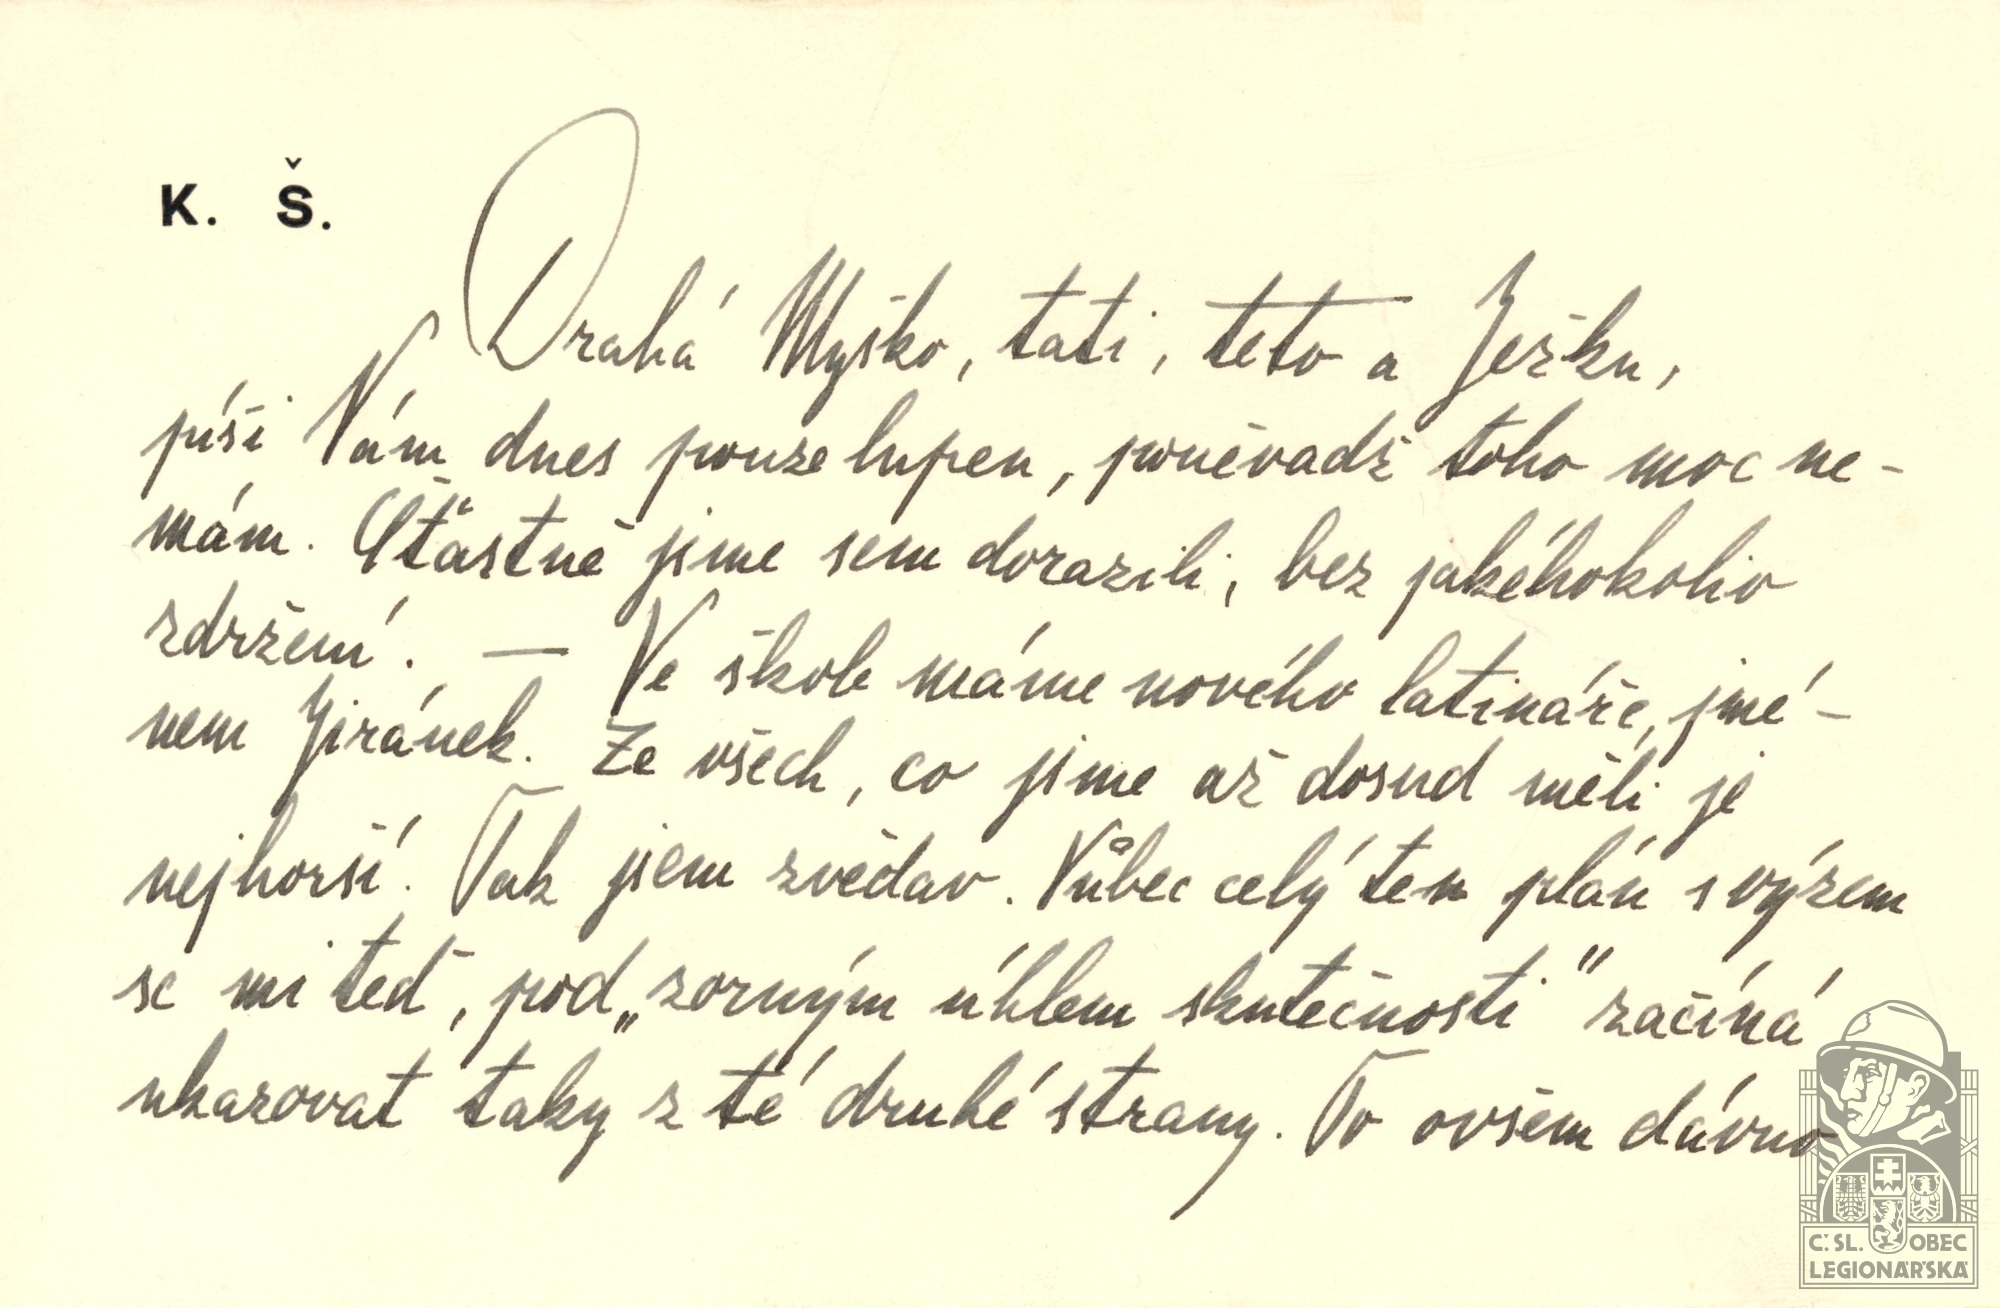 K. Š.
Drahá Myško, tati, teto a Ježku,
píši Vám dnes pouze lupen, poněvadž toho moc ne-
mám. Šťastně jsme sem dorazili, bez jakéhokoliv
zdržení. — Ve škole máme nového latináře, jmé-
nem Jiránek. Ze všech, co jsme až dosud měli je
nejhorší. Tak jsem zvědav. Vůbec celý ten plán s výzem
se mi teď, pod „zorným úhlem skutečnosti" začíná
ukazovat taky z té druhé strany. To ovšem dávno
Č.SL. OBEC
LEGIONÁŘSKÁ